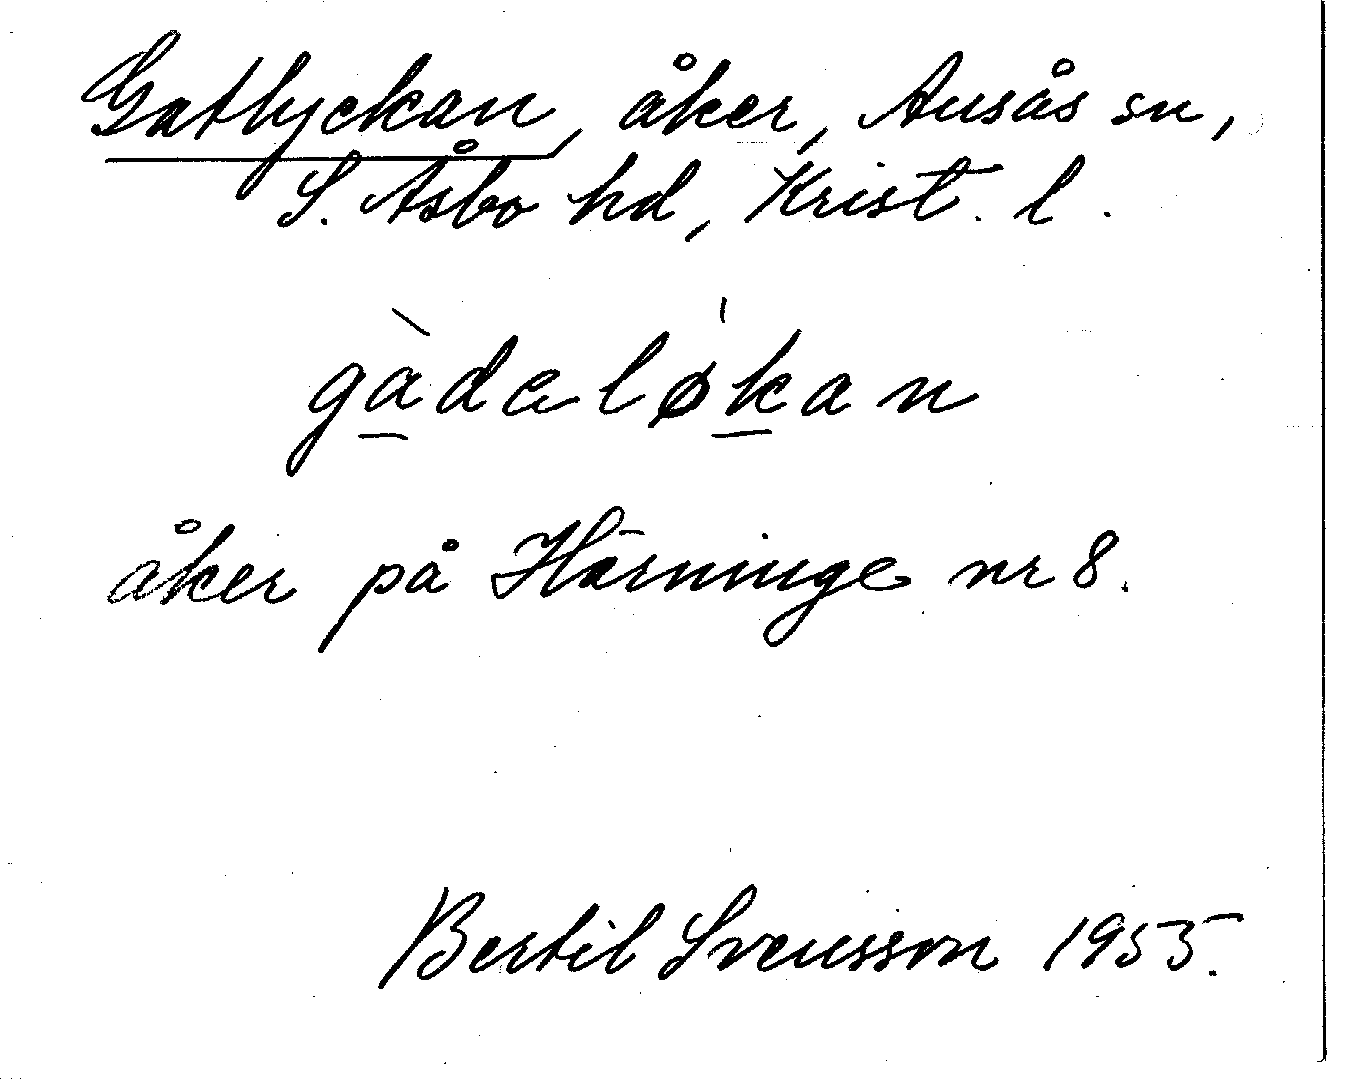 Gatlyckan, åker, Ausås sn,
S. Åsbo hd, Krist. l.
gàdeløkan
åker på Härninge nr 8.
Bertil Svensson 1955.